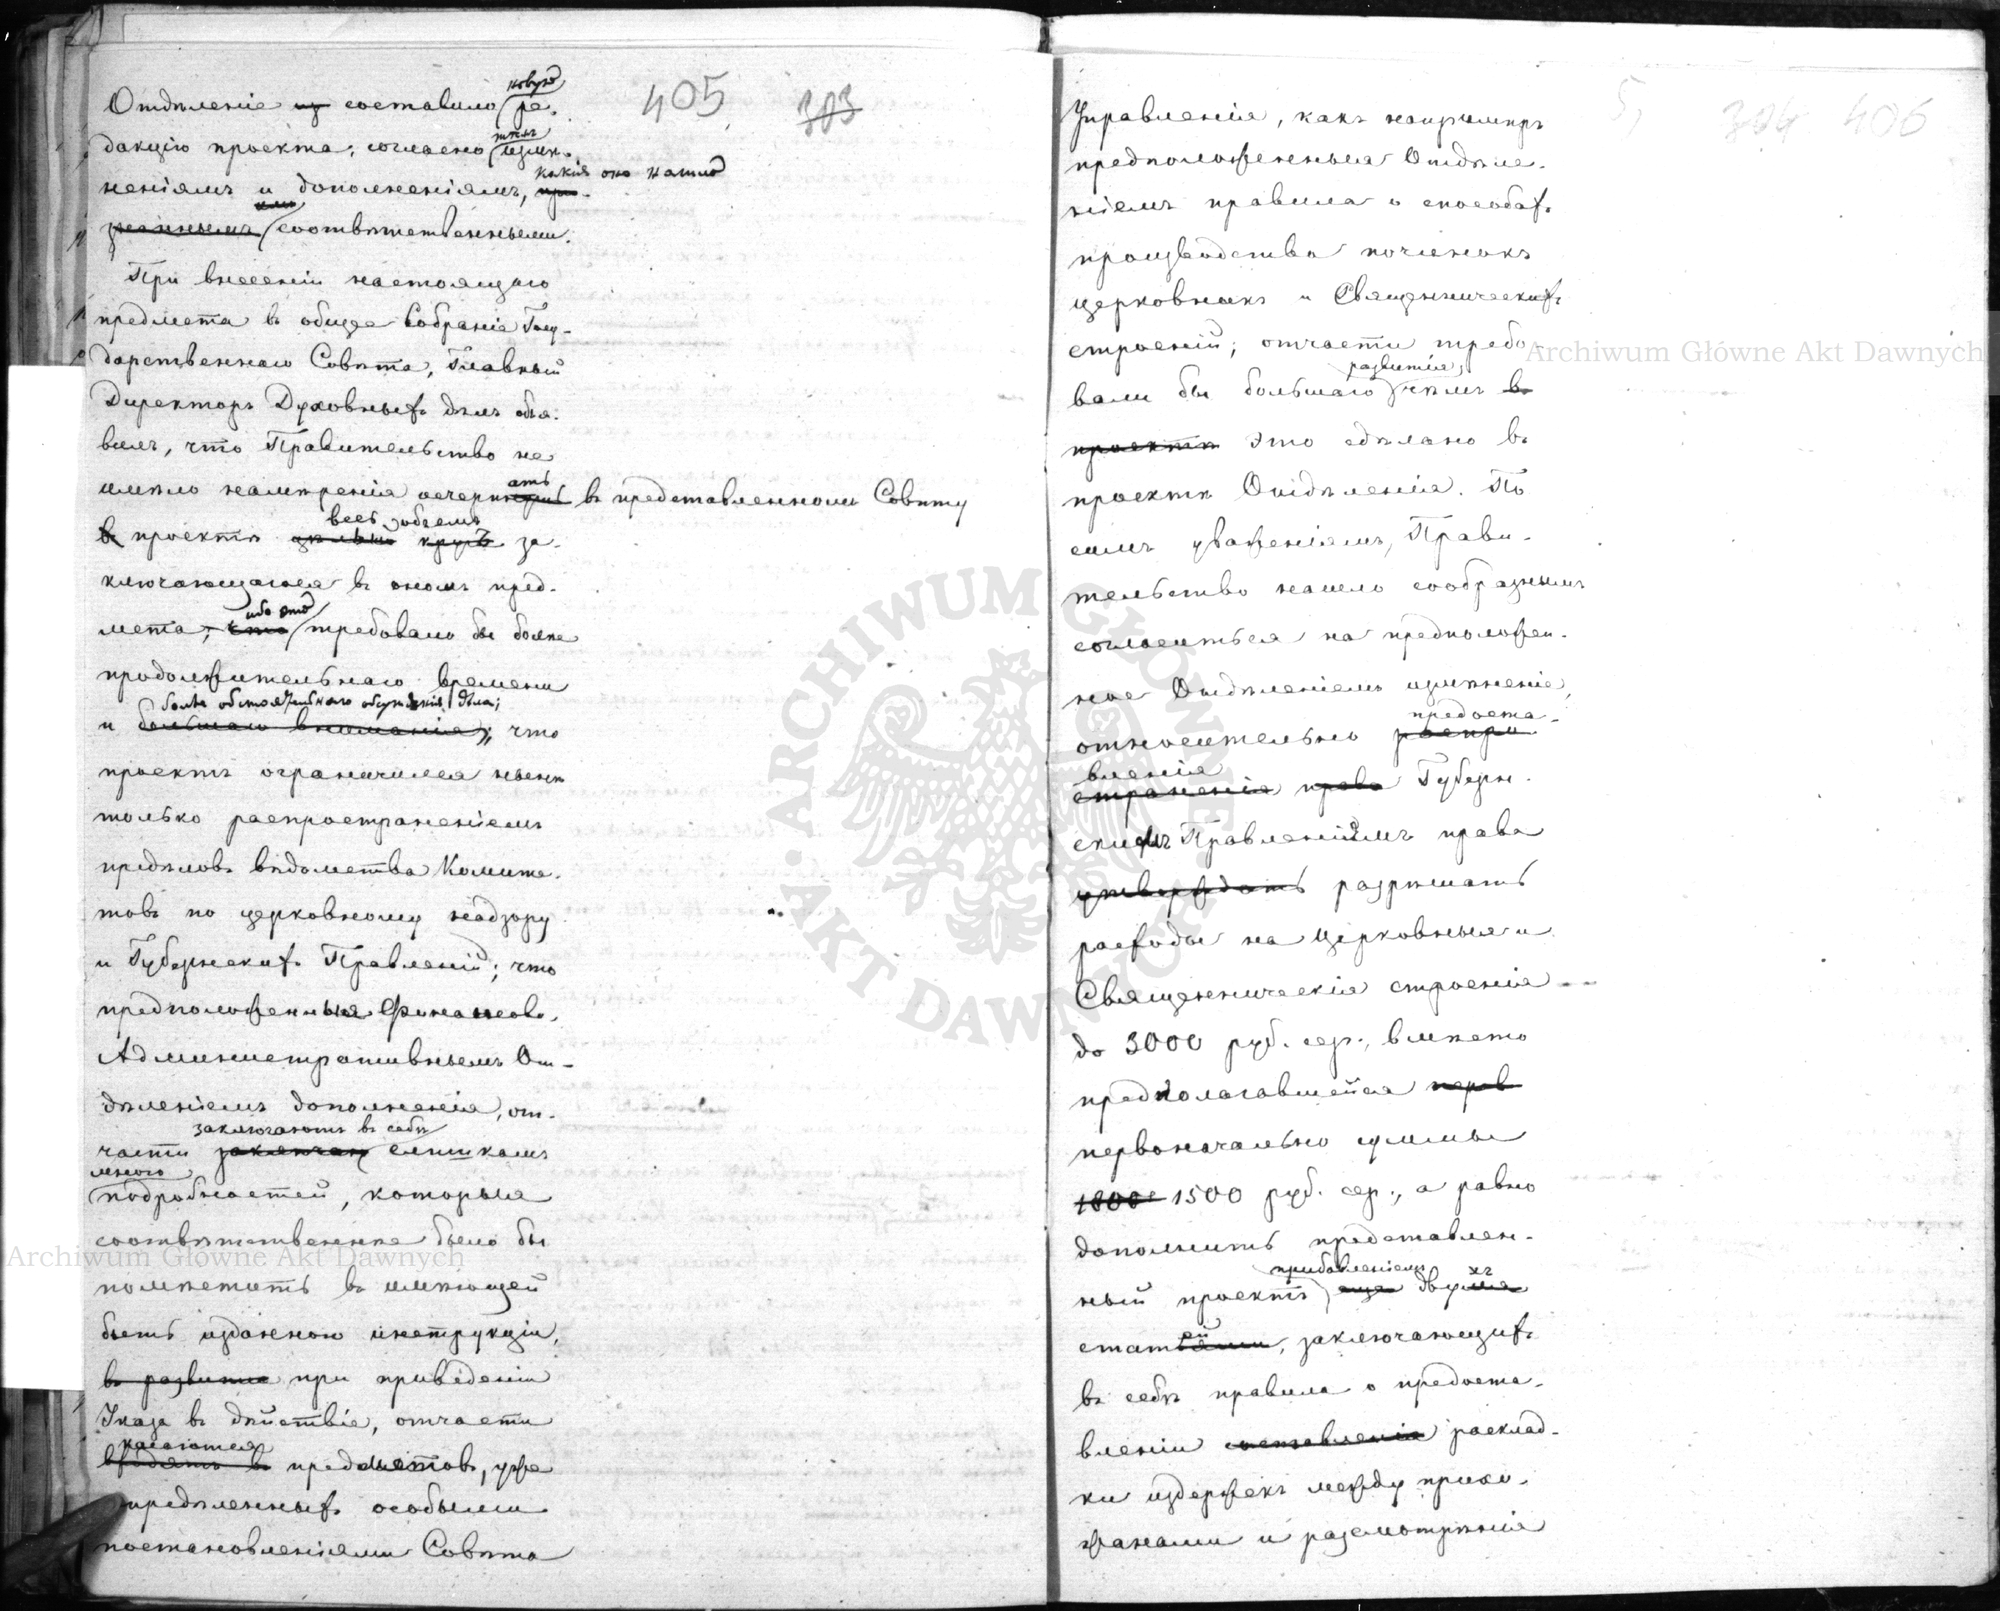 405 303
новую
Отдѣленіе из составило ре-
дакцію проекта, согласно тѣмъ измѣ-
неніямъ и дополненіямъ, какія оно нашло
соотвѣтственными.
При внесеніи настоящаго
предмета въ общее Собраніе Госу-
дарственнаго Совѣта, Главный
Директоръ Духовныхъ дѣлъ объя-
вилъ, что Правительство не
имѣло намѣренія исчерпать въ представленномъ Совѣту
в проектѣ весь объемъ за-
ключающагося въ ономъ пред-
мета, что ибо это требовало бы болѣе
продолжительнаго времени
болѣе обстоятельнаго обсужденія дѣла;
и большаго вниманія; что
проектъ ограничился нынѣ
только распространеніемъ
предѣловъ вѣдомства Комите-
товъ по церковному надзору
и Губернскихъ Правленій; что
предположенныя Финансово-
Административнымъ От-
дѣленіемъ дополненія, от-
заключаютъ въ себѣ
части заключаю слишкомъ
много
подробностей, которыя
соотвѣтственнѣе было бы
помѣстить въ имѣющей
быть изданною инструкціи,
въ развитіе при приведеніи
Указа въ дѣйствіе, отчасти
касаются
входятъ въ предметовъ, уже
предѣленныхъ особыми
постановленіями Совѣта
5, 304 406
Управленія, какъ напримѣръ
предположенныя Отдѣле-
ніемъ правила о способахъ
производства починокъ
церковныхъ и Священническихъ
строеній; отчасти требо-
развитія,
вали бы большаго чѣмъ в
проектѣ это сдѣлано въ
проектѣ Отдѣленія. По
симъ уваженіямъ, Прави-
тельство нашло сообразнымъ
согласиться на предположен-
ное Отдѣленіемъ измѣненіе,
предоста-
относительно распро
вленія
страненія права Губерн-
скимъ Правленіямъ права
утверждать разрѣшать
расходы на церковныя и
Священническія строенія
до 3000 руб. сер., вмѣсто
предполагавшейся перв
первоначально суммы
1000 1500 руб. сер., а равно
дополнить представлен-
прибавленіемъ
ный проектъ еще двухъ
статей, заключающихъ
въ себѣ правила о предоста-
вленіи составленія расклад-
ки издержекъ между прихо-
жанами и разсмотрѣнія
Archiwum Główne Akt Dawnych
Archiwum Główne Akt Dawnych
ARCHIWUM GŁÓWNE · AKT DAWNYCH ·